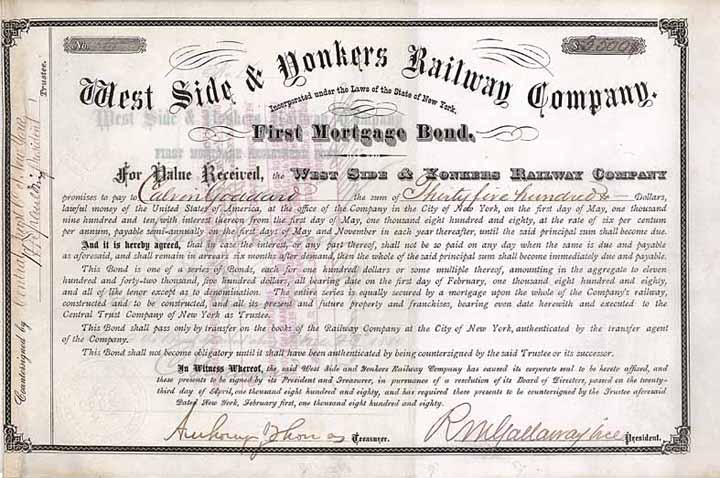 No.
$3500
West Side & Yonkers Railway Company.
Incorporated under the Laws of the State of New York.
First Mortgage Bond.
For Value Received, the WEST SIDE & YONKERS RAILWAY COMPANY
promises to pay to Calvin Goddard the sum of Thirty five hundred Dollars,
lawful money of the United States of America, at the office of the Company in the City of New York, on the first day of May, one thousand
nine hundred and ten, with interest thereon from the first day of May, one thousand eight hundred and eighty, at the rate of six per centum
per annum, payable semi-annually on the first days of May and November in each year thereafter, until the said principal sum shall become due.
And it is hereby agreed, that in case the interest, or any part thereof, shall not be so paid on any day when the same is due and payable
as aforesaid, and shall remain in arrears six months after demand, then the whole of the said principal sum shall become immediately due and payable.
This Bond is one of a series of Bonds, each for one hundred dollars or some multiple thereof, amounting in the aggregate to eleven
hundred and forty-two thousand, five hundred dollars, all bearing date on the first day of February, one thousand eight hundred and eighty,
and all of like tenor except as to denomination. The entire series is equally secured by a mortgage upon the whole of the Company's railway,
constructed and to be constructed, and all its present and future property and franchises, bearing even date herewith and executed to the
Central Trust Company of New York as Trustee.
This Bond shall pass only by transfer on the books of the Railway Company at the City of New York, authenticated by the transfer agent
of the Company.
This Bond shall not become obligatory until it shall have been authenticated by being countersigned by the said Trustee or its successor.
In Witness Whereof, the said West Side and Yonkers Railway Company has caused its corporate seal to be hereto affixed, and
these presents to be signed by its President and Treasurer, in pursuance of a resolution of its Board of Directors, passed on the twenty-
third day of April, one thousand eight hundred and eighty, and has required these presents to be countersigned by the Trustee aforesaid
Dated New York, February first, one thousand eight hundred and eighty.
Treasurer.
R M Gallaway Vice President.
Countersigned by Central Trust Co of New York
President
Trustee.